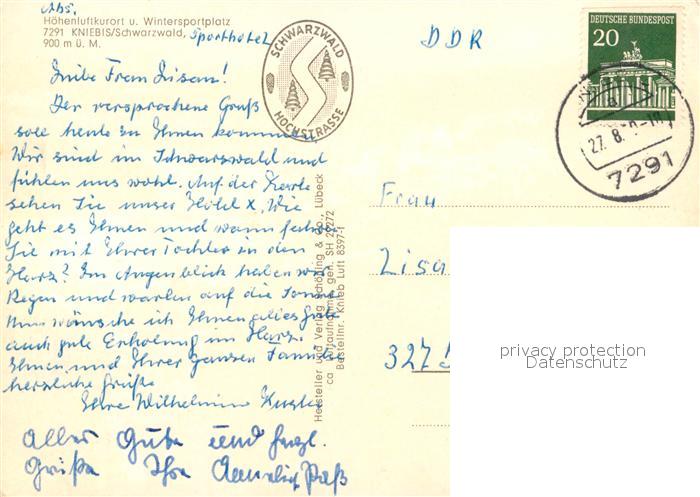 Abs.
Höhenluftkurort u. Wintersportplatz
7291 KNIEBIS/Schwarzwald, Sporthotel
900 m ü. M.
SCHWARZWALD
HOCHSTRASSE
DDR
DEUTSCHE BUNDESPOST
20
27. 8.
7291
Liebe Frau Lisan!
Der versprochene Gruß
soll heute zu Ihnen kommen,
Wir sind im Schwarzwald und
fühlen uns wohl. Auf der Karte
sehen Sie unser Hotel x, Wie
geht es Ihnen und wann fahren
Sie mit Ihrer Tochter in den
Harz? Im Augenblick haben wir
Regen und warten auf die Sonne
Nun wünsche ich Ihnen alles Gute
auch gute Erholung im Harz.
Ihnen und Ihrer ganzen Familie
herzliche Grüße
Ihre Wilhelmine
Alles Gute und herzl.
Grüße Ihre
Hersteller und Verlag Schöning & Co., Lübeck
ca Luftaufnahme gen. SH
Bestellnr. Knieb Luft 8397-1
Frau
Lisa
327
privacy protection
Datenschutz